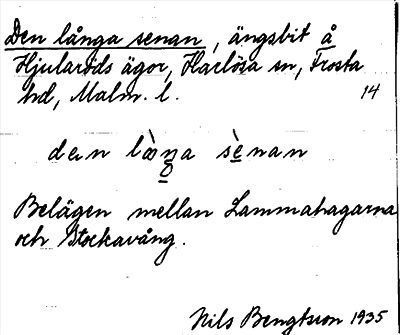 Den långa senan, ängsbit å
Hjularöds ägor, Harlösa sn, Frosta
hd, Malm. l. 14
den
Belägen mellan Lammahagarna
och Stockavång.
Nils Bengtsson 1935